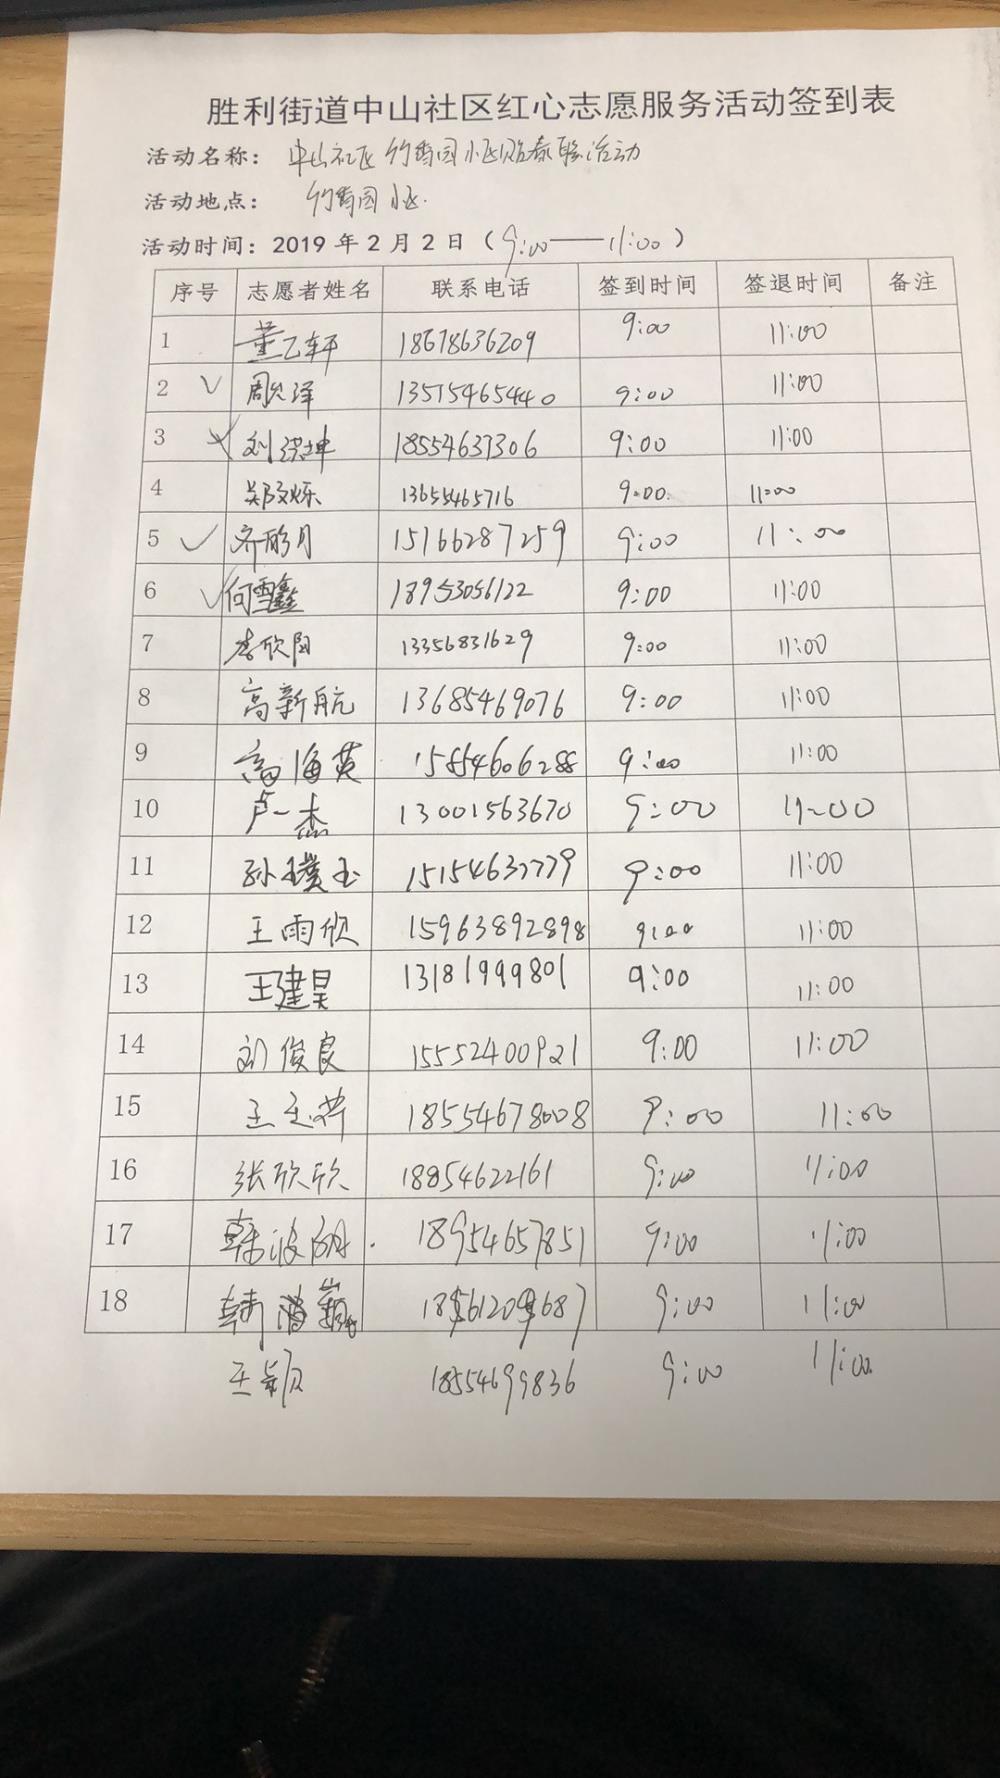 胜利街道中山社区红心志愿服务活动签到表
活动名称： 中山社区竹香园小区贴春联活动
活动地点： 竹香园小区.
活动时间：2019 年 2 月 2 日（9:00——11:00）
序号 志愿者姓名 联系电话 签到时间 签退时间 备注
1 董乙轩 18678636209 9:00 11:00
2 ✓ 周欣泽 13515465440 9:00 11:00
3 刘洪坤 18554637306 9:00 11:00
4 郑文烁 13655465716 9:00. 11:00
5 ✓ 齐彤月 15166287259 9:00 11:00
6 ✓ 何雪鑫 18953056122 9:00 11:00
7 李欣阳 13356831629 9:00 11:00
8 高新航 13685469076 9:00 11:00
9 高海英 15854606288 9:00 11:00
10 卢一杰 13001563670 9:00 11:00
11 孙璞玉 15154637779 9:00 11:00
12 王雨欣 15963892898 9:00 11:00
13 王建昊 13181999801 9:00 11:00
14 刘俊良 15552400921 9:00 11:00
15 王 18554678008 9:00 11:00
16 张欣欣 18854622161 9:00 11:00
17 韩 18954657851 9:00 11:00
18 韩 18561209687 9:00 11:00
王颖 18554699836 9:00 11:00.